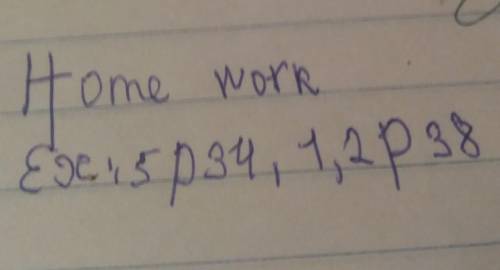 Home work
Ex: 5 p 34, 1, 2 p 38